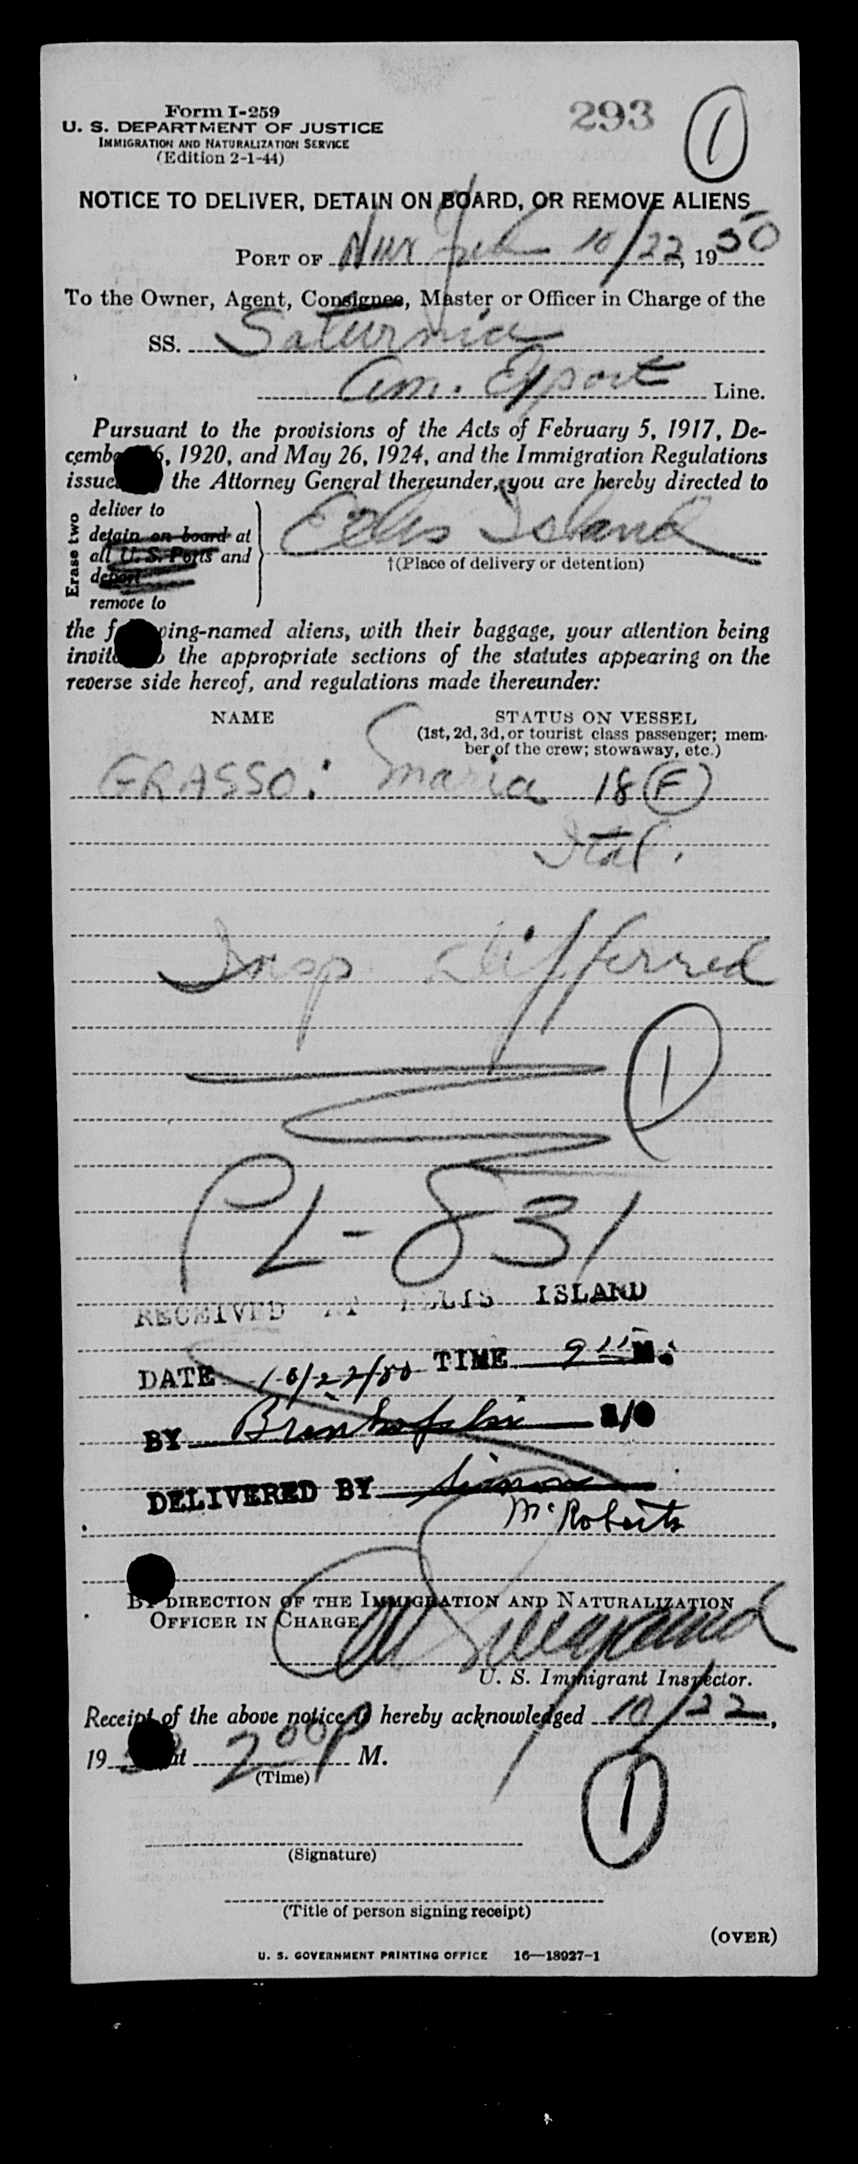 Form I-259
293
1
U. S. DEPARTMENT OF JUSTICE
IMMIGRATION AND NATURALIZATION SERVICE
(Edition 2-1-44)
NOTICE TO DELIVER, DETAIN ON BOARD, OR REMOVE ALIENS
PORT OF New York 10/22, 1950
To the Owner, Agent, Consignee, Master or Officer in Charge of the
SS. Saturnia
Am. Export Line.
Pursuant to the provisions of the Acts of February 5, 1917, De-
cember 26, 1920, and May 26, 1924, and the Immigration Regulations
issued the Attorney General thereunder, you are hereby directed to
Erase two
deliver to
detain on board at
all U. S. Ports and
deport
remove to
Ellis Island
†(Place of delivery or detention)
the following-named aliens, with their baggage, your attention being
invited to the appropriate sections of the statutes appearing on the
reverse side hereof, and regulations made thereunder:
NAME
STATUS ON VESSEL
(1st, 2d, 3d, or tourist class passenger; mem-
ber of the crew; stowaway, etc.)
GRASSO: Maria 18 F
Ital.
Insp Differred
1
PL-831
RECEIVED AT ELLIS ISLAND
DATE 10/22/50 TIME 9 15 M.
BY
DELIVERED BY
McRoberts
BY DIRECTION OF THE IMMIGRATION AND NATURALIZATION
OFFICER IN CHARGE.
U. S. Immigrant Inspector.
Receipt of the above notice is hereby acknowledged 10/22,
1950 at 2 00 P M.
(Time)
1
(Signature)
(Title of person signing receipt)
(OVER)
U. S. GOVERNMENT PRINTING OFFICE 16—18927-1